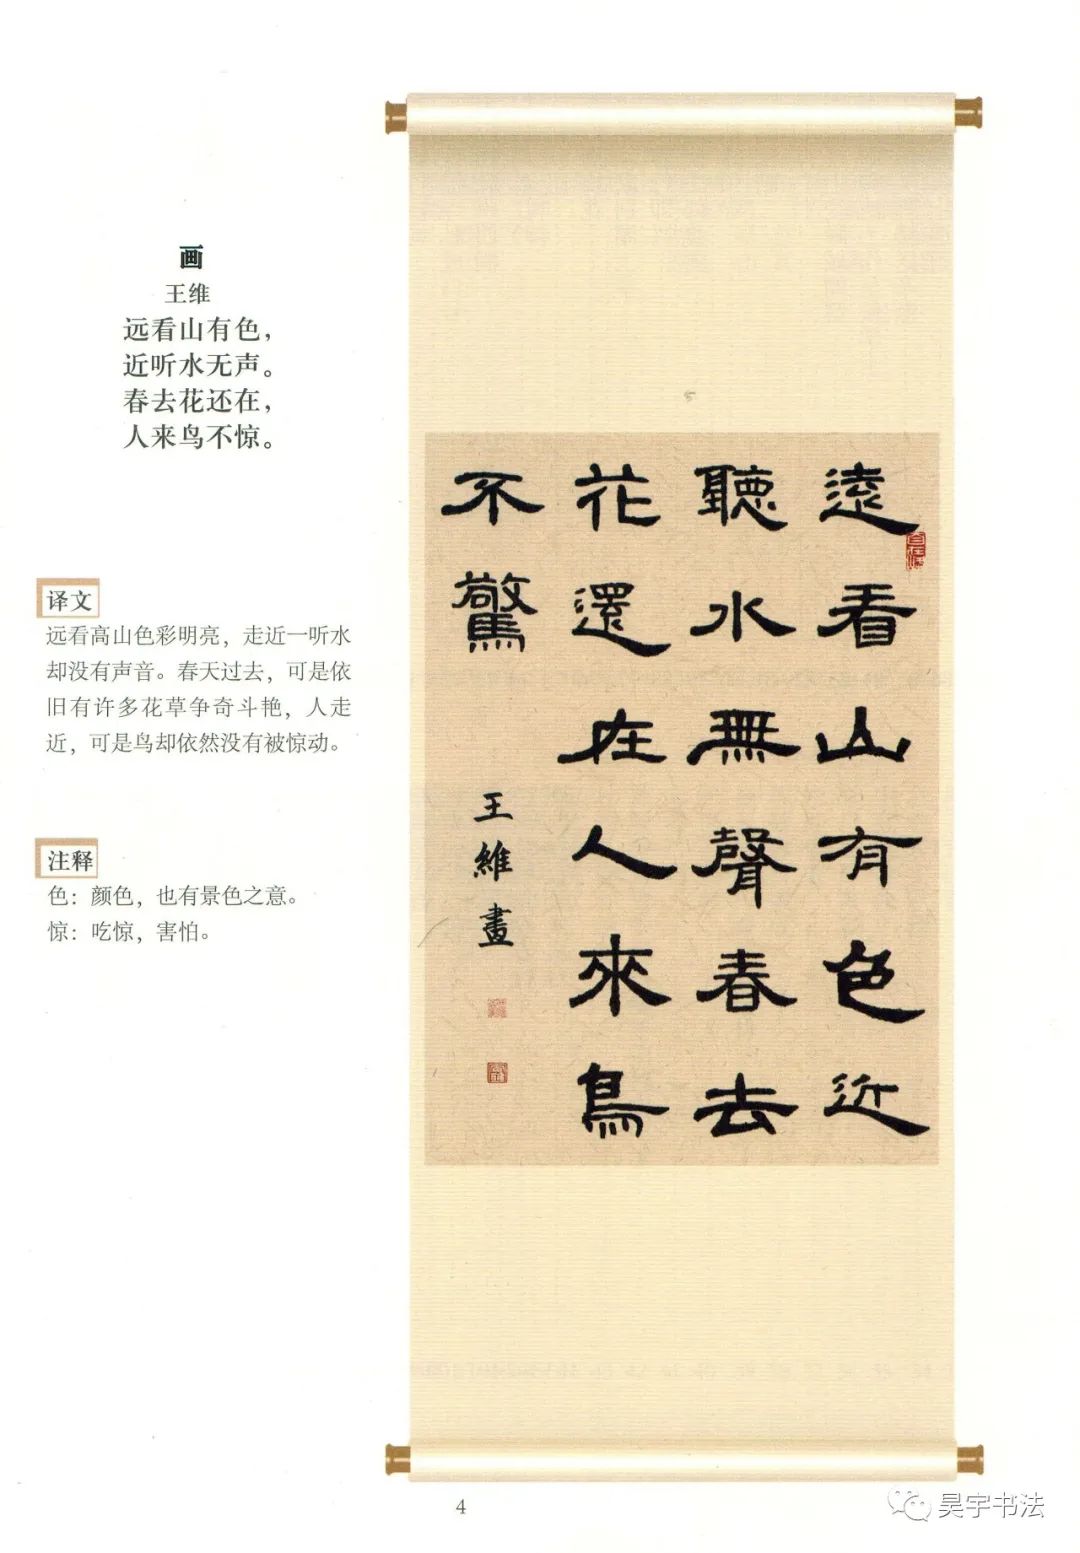 画
王维
远看山有色，
近听水无声。
春去花还在，
人来鸟不惊。
译文
远看高山色彩明亮，走近一听水
却没有声音。春天过去，可是依
旧有许多花草争奇斗艳，人走
近，可是鸟却依然没有被惊动。
注释
色：颜色，也有景色之意。
惊：吃惊，害怕。
遠看山有色近
聽水無聲春去
花還在人來鳥
不驚
王維畫
4
昊宇书法